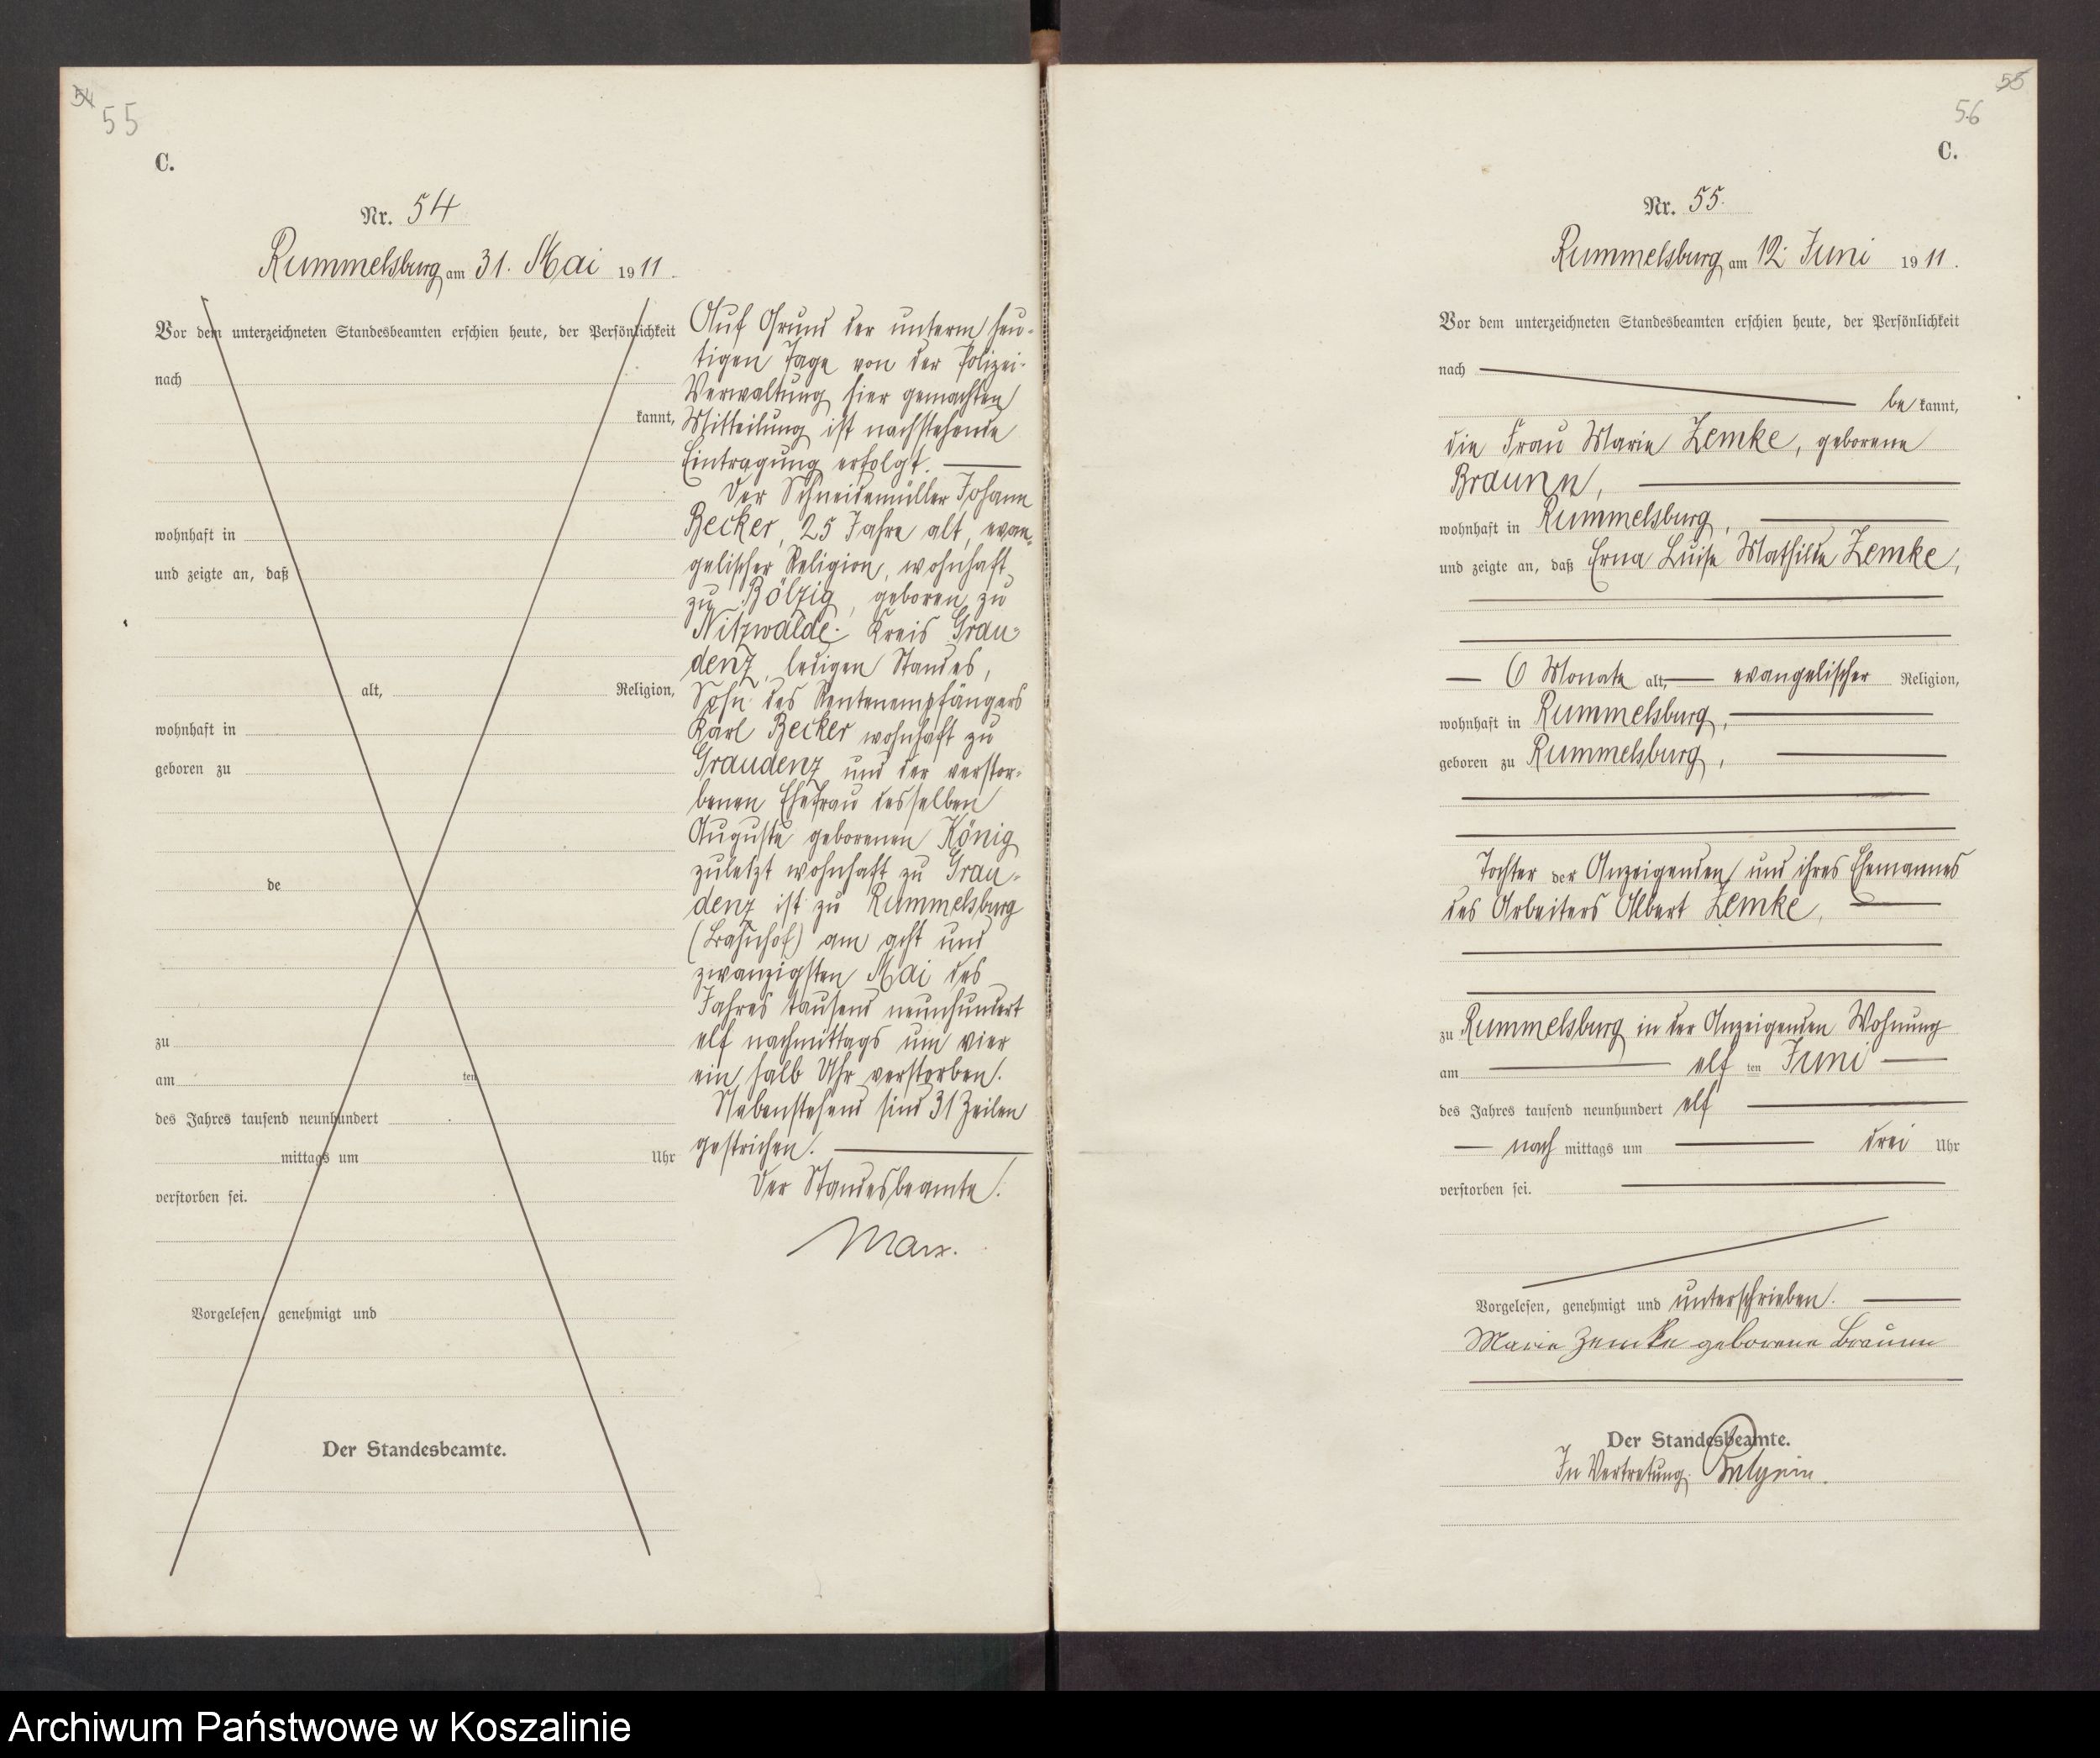 54
55
C.
Nr. 54
Rummelsburg am 31. Mai 1911.
Vor dem unterzeichneten Standesbeamten erschien heute, der Persönlichkeit
nach
kannt,
wohnhaft in
und zeigte an, daß
alt, Religion,
wohnhaft in
geboren zu
de
zu
am ten
des Jahres tausend neunhundert
mittags um Uhr
verstorben sei.
Vorgelesen, genehmigt und
Der Standesbeamte.
Auf Grund der unterm heu-
tigen Tage von der Polizei-
Verwaltung hier gemachten
Mitteilung ist nachstehende
Eintragung erfolgt.
Der Schneidemüller Johann
Becker, 25 Jahre alt, evan-
gelischer Religion, wohnhaft
zu Bölzig, geboren zu
Nitzwalde Kreis Grau-
denz, ledigen Standes,
Sohn des Rentenempfängers
Karl Becker wohnhaft zu
Graudenz und der verstor-
benen Ehefrau desselben
Auguste geborenen König
zuletzt wohnhaft zu Grau-
denz ist zu Rummelsburg
(Bahnhof) am acht und
zwanzigsten Mai des
Jahres tausend neunhundert
elf nachmittags um vier
ein halb Uhr verstorben.
Nebenstehend sind 31 Zeilen
gestrichen.
Der Standesbeamte.
Marx.
55
56
C.
Nr. 55.
Rummelsburg am 12. Juni 1911.
Vor dem unterzeichneten Standesbeamten erschien heute, der Persönlichkeit
nach
be kannt,
die Frau Marie Zemke, geborene
Braunn,
wohnhaft in Rummelsburg,
und zeigte an, daß Erna Luise Mathilde Zemke,
6 Monate alt, evangelischer Religion,
wohnhaft in Rummelsburg,
geboren zu Rummelsburg,
Tochter der Anzeigenden und ihres Ehemannes
des Arbeiters Albert Zemke,
zu Rummelsburg in der Anzeigenden Wohnung
am elf ten Juni
des Jahres tausend neunhundert elf
nach mittags um drei Uhr
verstorben sei.
Vorgelesen, genehmigt und unterschrieben.
Marie Zemke geborene Braunn
Der Standesbeamte.
In Vertretung.
Archiwum Państwowe w Koszalinie